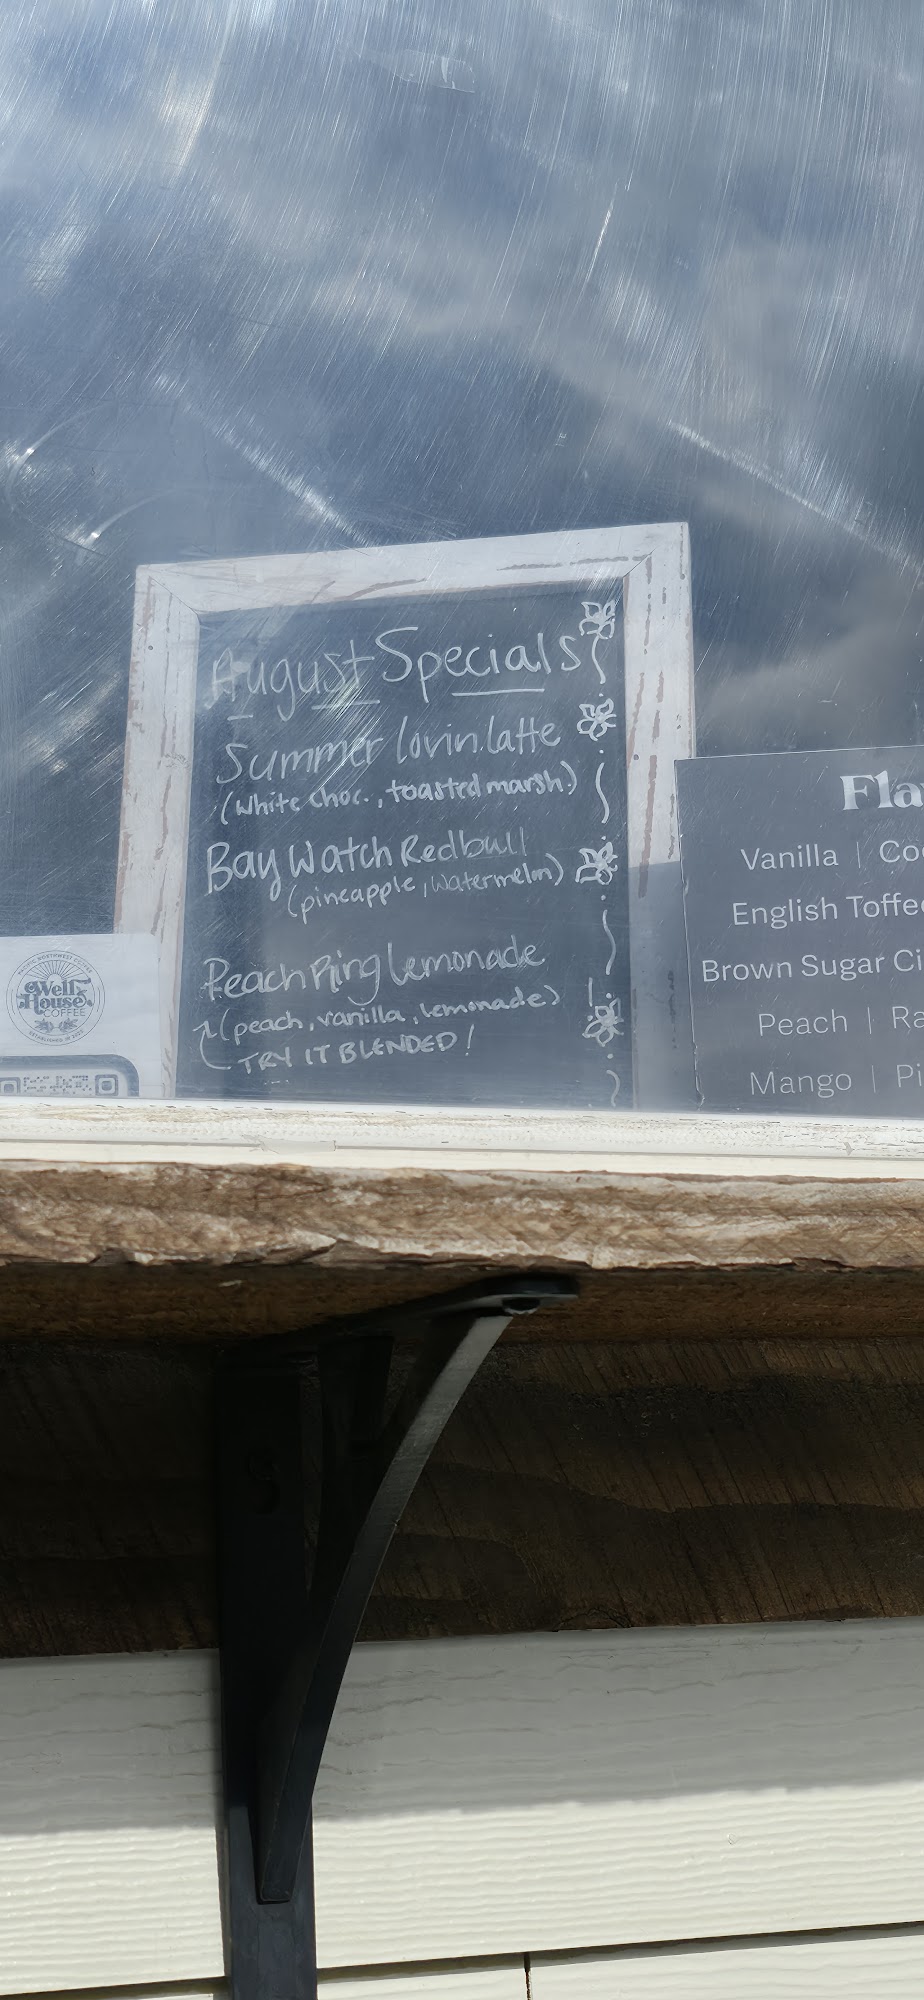 August Specials
Summer lovin latte
(white choc., toasted marsh.)
Bay Watch Redbull
(pineapple, watermelon)
Peach Ring Lemonade
(peach, vanilla, lemonade)
TRY IT BLENDED!
PACIFIC NORTHWEST COFFEE
Well
House
COFFEE
Fla
Vanilla | Co
English Toffee
Brown Sugar Ci
Peach | Ra
Mango | Pi